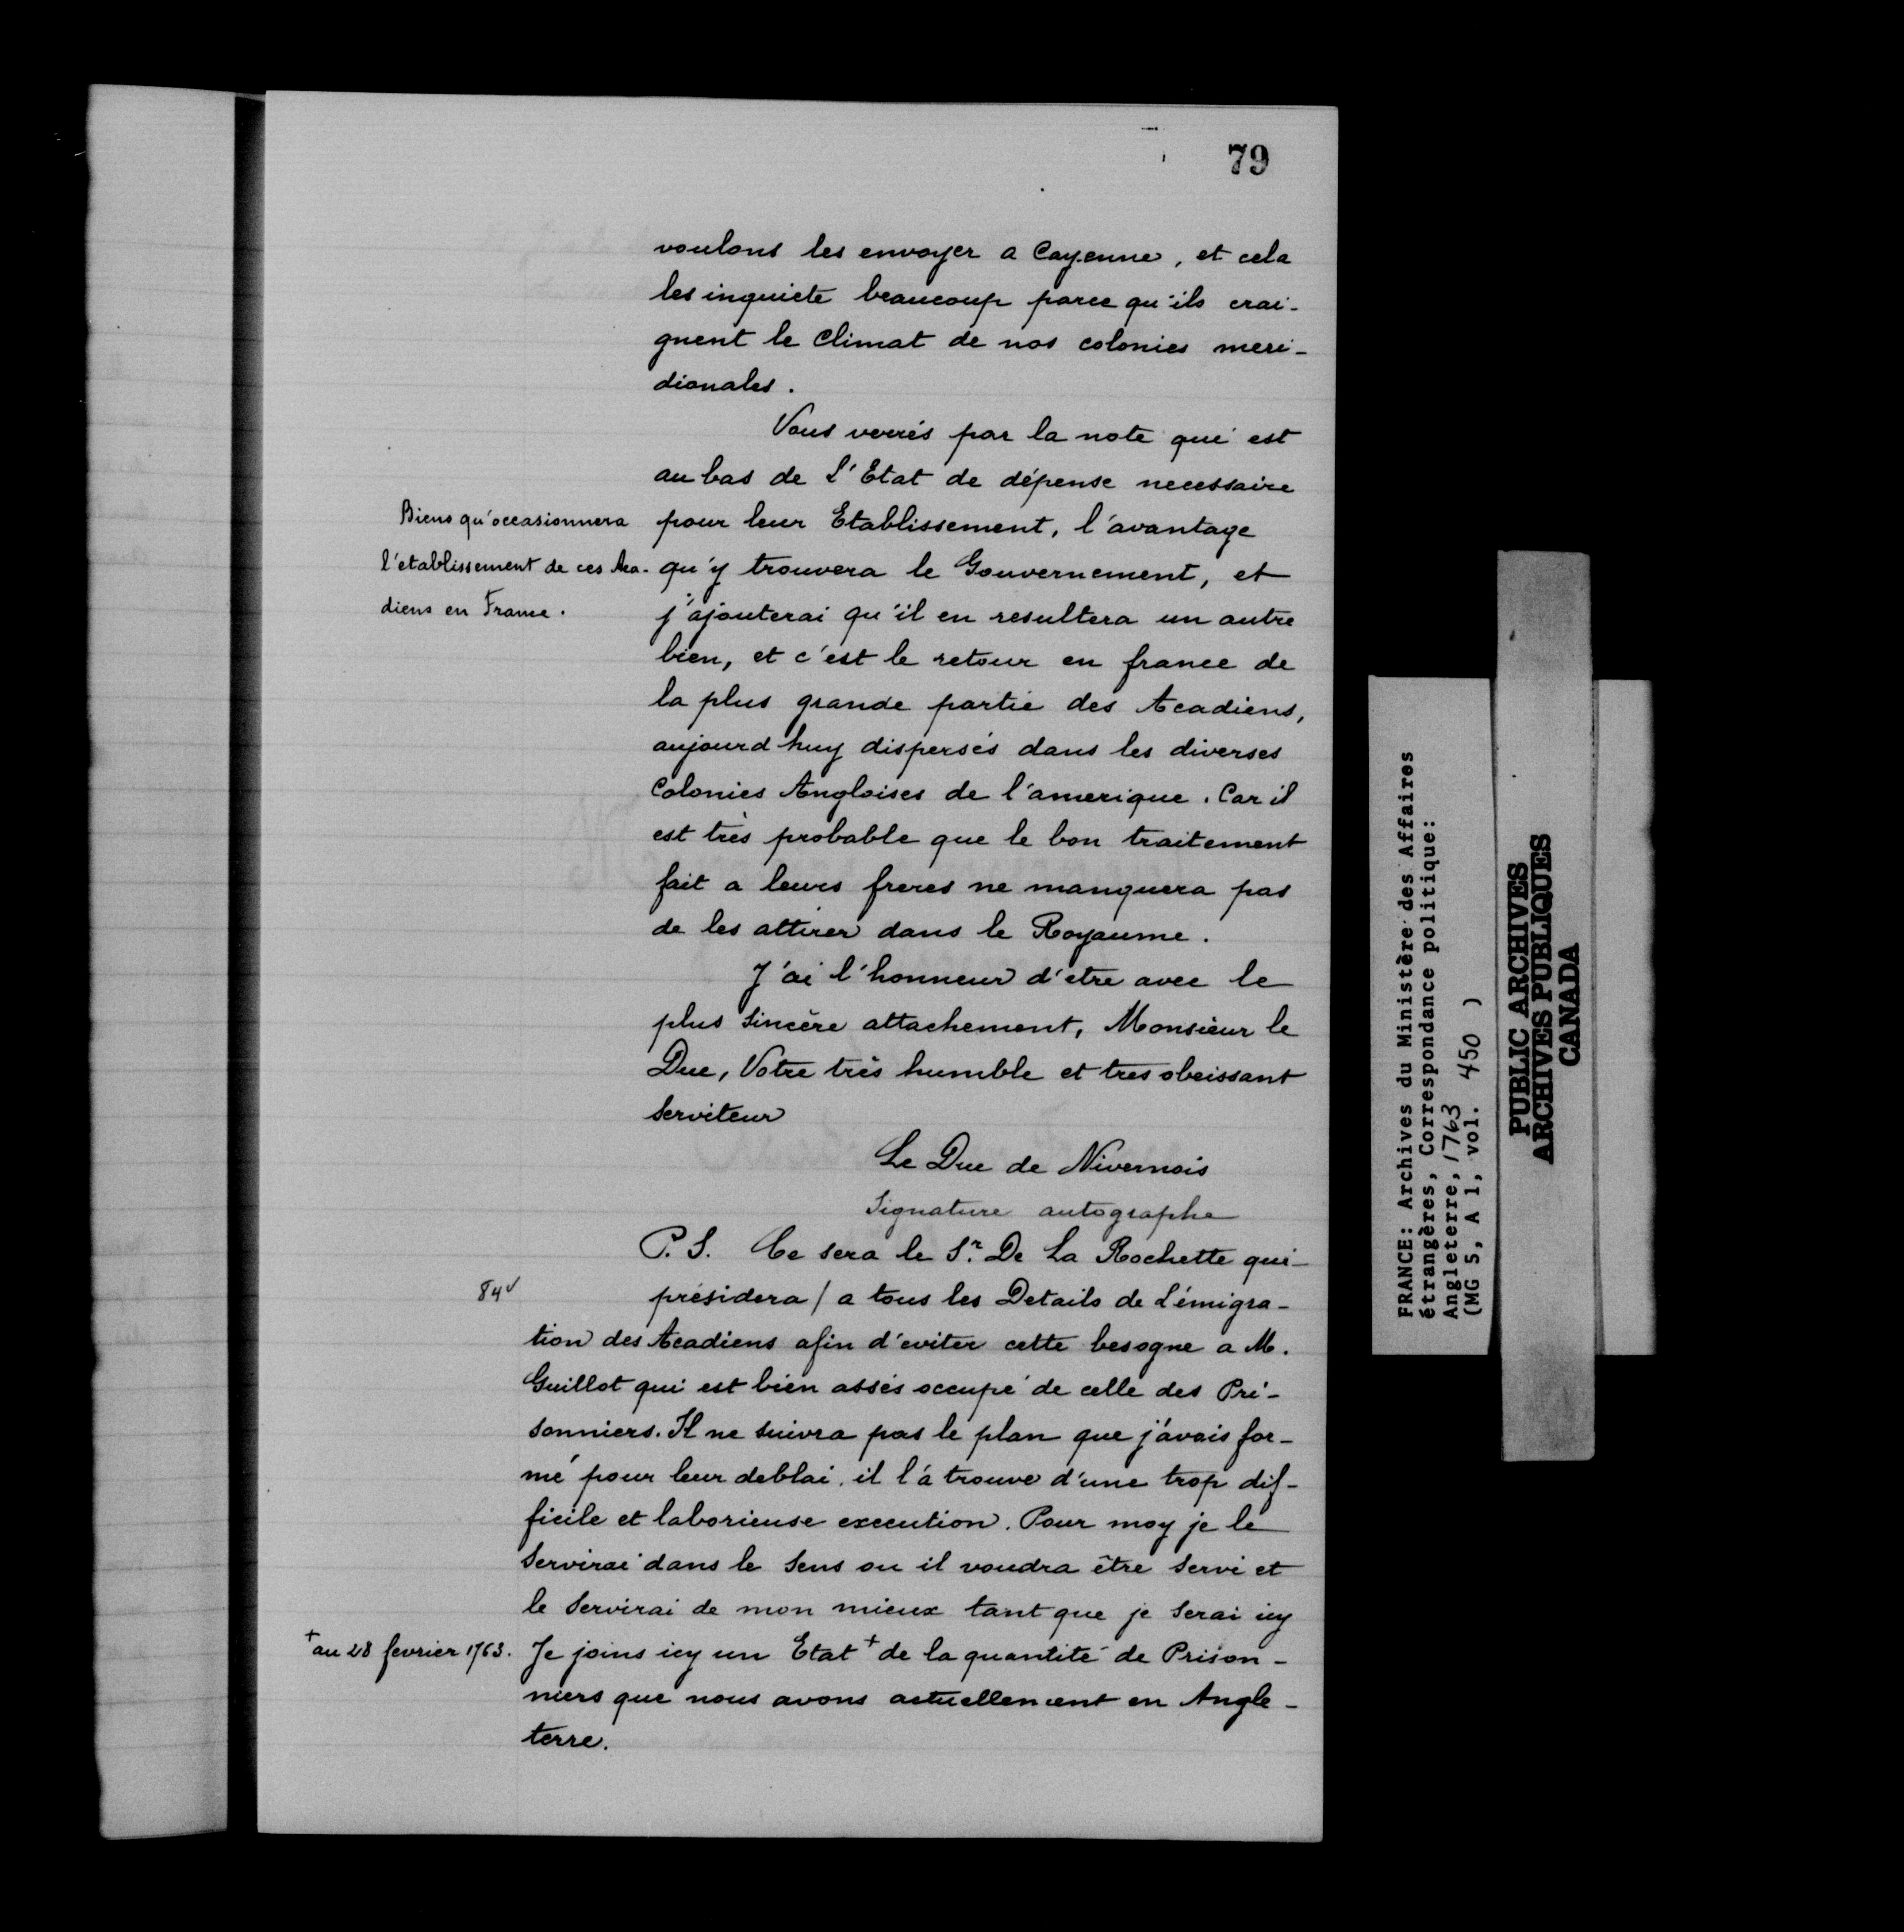 79
voulons les envoyer a Cayenne, et cela
les inquiete beaucoup parce qu'ils crai-
gnent le Climat de nos colonies meri-
dionales.
Vous verrés par la note qui est
au bas de l'Etat de dépense necessaire
Biens qu'occasionnera
l'etablissement de ces Aca-
diens en France.
pour leur Etablissement, l'avantage
qu'y trouvera le Gouvernement, et
j'ajouterai qu'il en resultera un autre
bien, et c'est le retour en france de
la plus grande partie des Acadiens,
aujourd huy dispersés dans les diverses
Colonies Angloises de l'amerique. Car il
est très probable que le bon traitement
fait a leurs freres ne manquera pas
de les attirer dans le Royaume.
J'ai l'honneur d'etre avec le
plus Sincère attachement, Monsieur le
Duc, Votre très humble et tres obeissant
Serviteur
Le Duc de Nivernois
Signature autographe
P. S. Ce sera le Sr. De La Rochette qui
84v
présidera / a tous les Details de L'émigra-
tion des Acadiens afin d'eviter cette besogne a M.
Guillot qui est bien assés occupé de celle des Pri-
sonniers. Il ne suivra pas le plan que j'avais for-
mé pour leur deblai. il l'a trouve d'une trop dif-
ficile et laborieuse execution. Pour moy je le
Servirai dans le Sens ou il voudra être Servi et
le Servirai de mon mieux tant que je Serai icy
+ au 28 fevrier 1763.
Je joins icy un Etat + de la quantité de Prison-
niers que nous avons actuellement en Angle-
terre.
FRANCE: Archives du Ministère des Affaires
étrangères, Correspondance politique:
Angleterre, 1763
(MG 5, A 1, vol. 450 )
PUBLIC ARCHIVES
ARCHIVES PUBLIQUES
CANADA